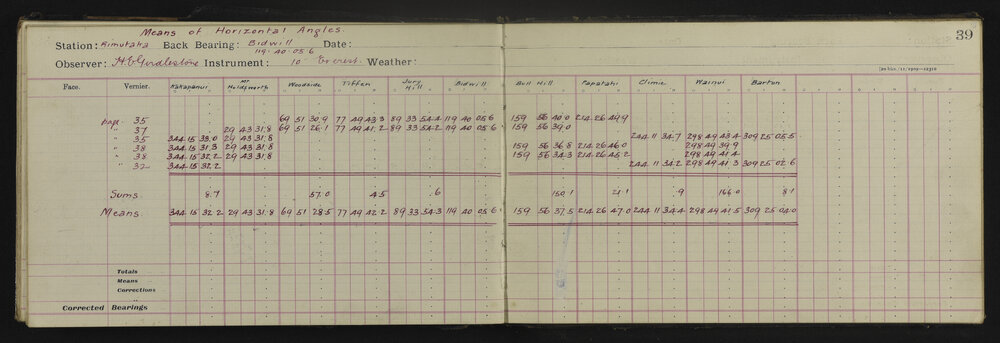 Means of Horizontal Angles.
39
Station: Rimutaka Back Bearing: Bidwill Date:
119. 40. 05.6
Observer: H.E. Girdlestone Instrument: 10" Everest Weather:
Face. Vernier. Kakapanui Mt Holdsworth Woodside Tiffen Jury Hill Bidwill Bull Hill Papatahi Climie Wainui Barton
page 35 69 51 30.9 77 49 43.3 89 33 54.4 119 40 05.6 159 56 40.0 214 26 49.9
" 37 29 43 31.8 69 51 26.1 77 49 41.2 89 33 54.2 119 40 05.6 159 56 39.0
" 35 344 15 33.0 29 43 31.8 244 11 34.7 298 49 43.4 309 25 05.5
" 38 344 15 31.3 29 43 31.8 159 56 36.8 214 26 46.0 298 49 39.9
" 38 344 15 32.2 29 43 31.8 159 56 34.3 214 26 45.2 298 49 41.4
" 32 344 15 32.2 244 11 34.2 298 49 41.3 309 25 02.6
Sums 8.7 57.0 4.5 .6 150.1 21.1 .9 166.0 8.1
Means 344 15 32.2 29 43 31.8 69 51 28.5 77 49 42.2 89 33 54.3 119 40 05.6 159 56 37.5 214 26 47.0 244 11 34.4 298 49 41.5 309 25 04.0
Totals
Means
Corrections
Corrected Bearings